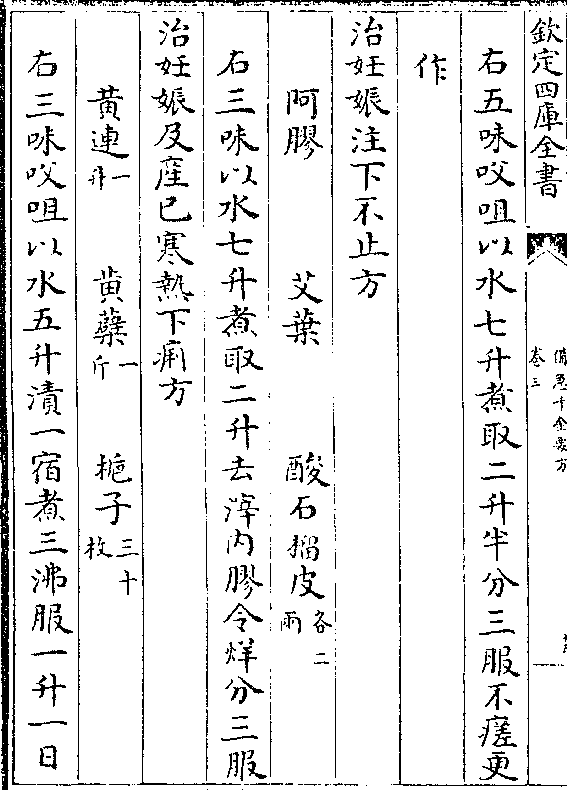 欽定四庫全書
備急千金要方
卷三
右五味㕮咀以水七升煮取二升半分三服不瘥更
作
治妊娠注下不止方
阿膠 艾葉 酸石榴皮各二兩
右三味以水七升煮取二升去滓内膠令烊分三服
治妊娠及産已寒熱下痢方
黄連一升 黄蘗一斤 梔子三十枚
右三味㕮咀以水五升漬一宿煮三沸服一升一日